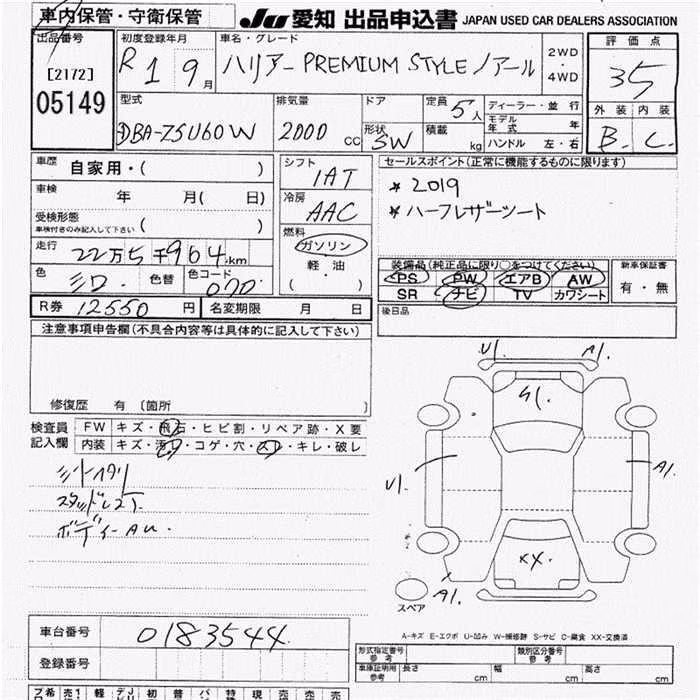 車内保管・守衛保管
JU 愛知 出品申込書 JAPAN USED CAR DEALERS ASSOCIATION
出品番号 初度登録年月 車名・グレード 評価点
[2172] R 1 9月 ハリアー PREMIUM STYLE ノアール 2WD・4WD 35
05149
型式 排気量 ドア 定員 5人 ディーラー・並行 外装 内装
DBA-ZSU60W 2000cc 形状 SW 積載 kg モデル年式 年 B. C.
ハンドル 左・右
車歴 自家用・( ) シフト 1AT セールスポイント(正常に機能するものに限ります)
車検 年 月( 日) 冷房 AAC ★ 2019
受検形態 ★ ハーフレザーシート
車検付きのみ記入して下さい ( ) 燃料
走行 22万5千964km ガソリン
色 シロ 色替 色コード 070 軽・油 装備品(純正品に限り○をつけてください) 新車保証書
( ・ ) PS PW エアB AW 有・無
R券 12550円 名変期限 月 日 SR ナビ TV カワシート
後日品
注意事項申告欄(不具合内容等は具体的に記入して下さい)
修復歴 有 〔箇所 〕
検査員記入欄 FW キズ・飛石・ヒビ割・リペア跡・X要
内装 キズ・汚れ・コゲ・穴・スレ・キレ・破レ
シートヘタリ
ボディーAU.
U1. A1.
S1.
U1. A1.
XX.
A1.
スペア
A-キズ E-エクボ U-凹み W-補修跡 S-サビ C-腐食 XX-交換済
車台番号 0183544
登録番号
形式指定番号 参考 類別区分番号 参考
車庫証明用 参考 長さ cm 幅 cm 高さ cm